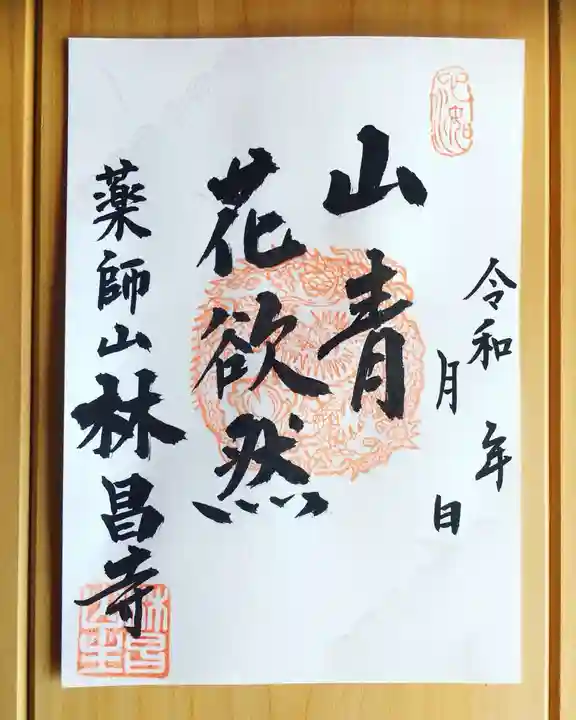 令和 年
月 日
山青
花欲然
薬師山林昌寺